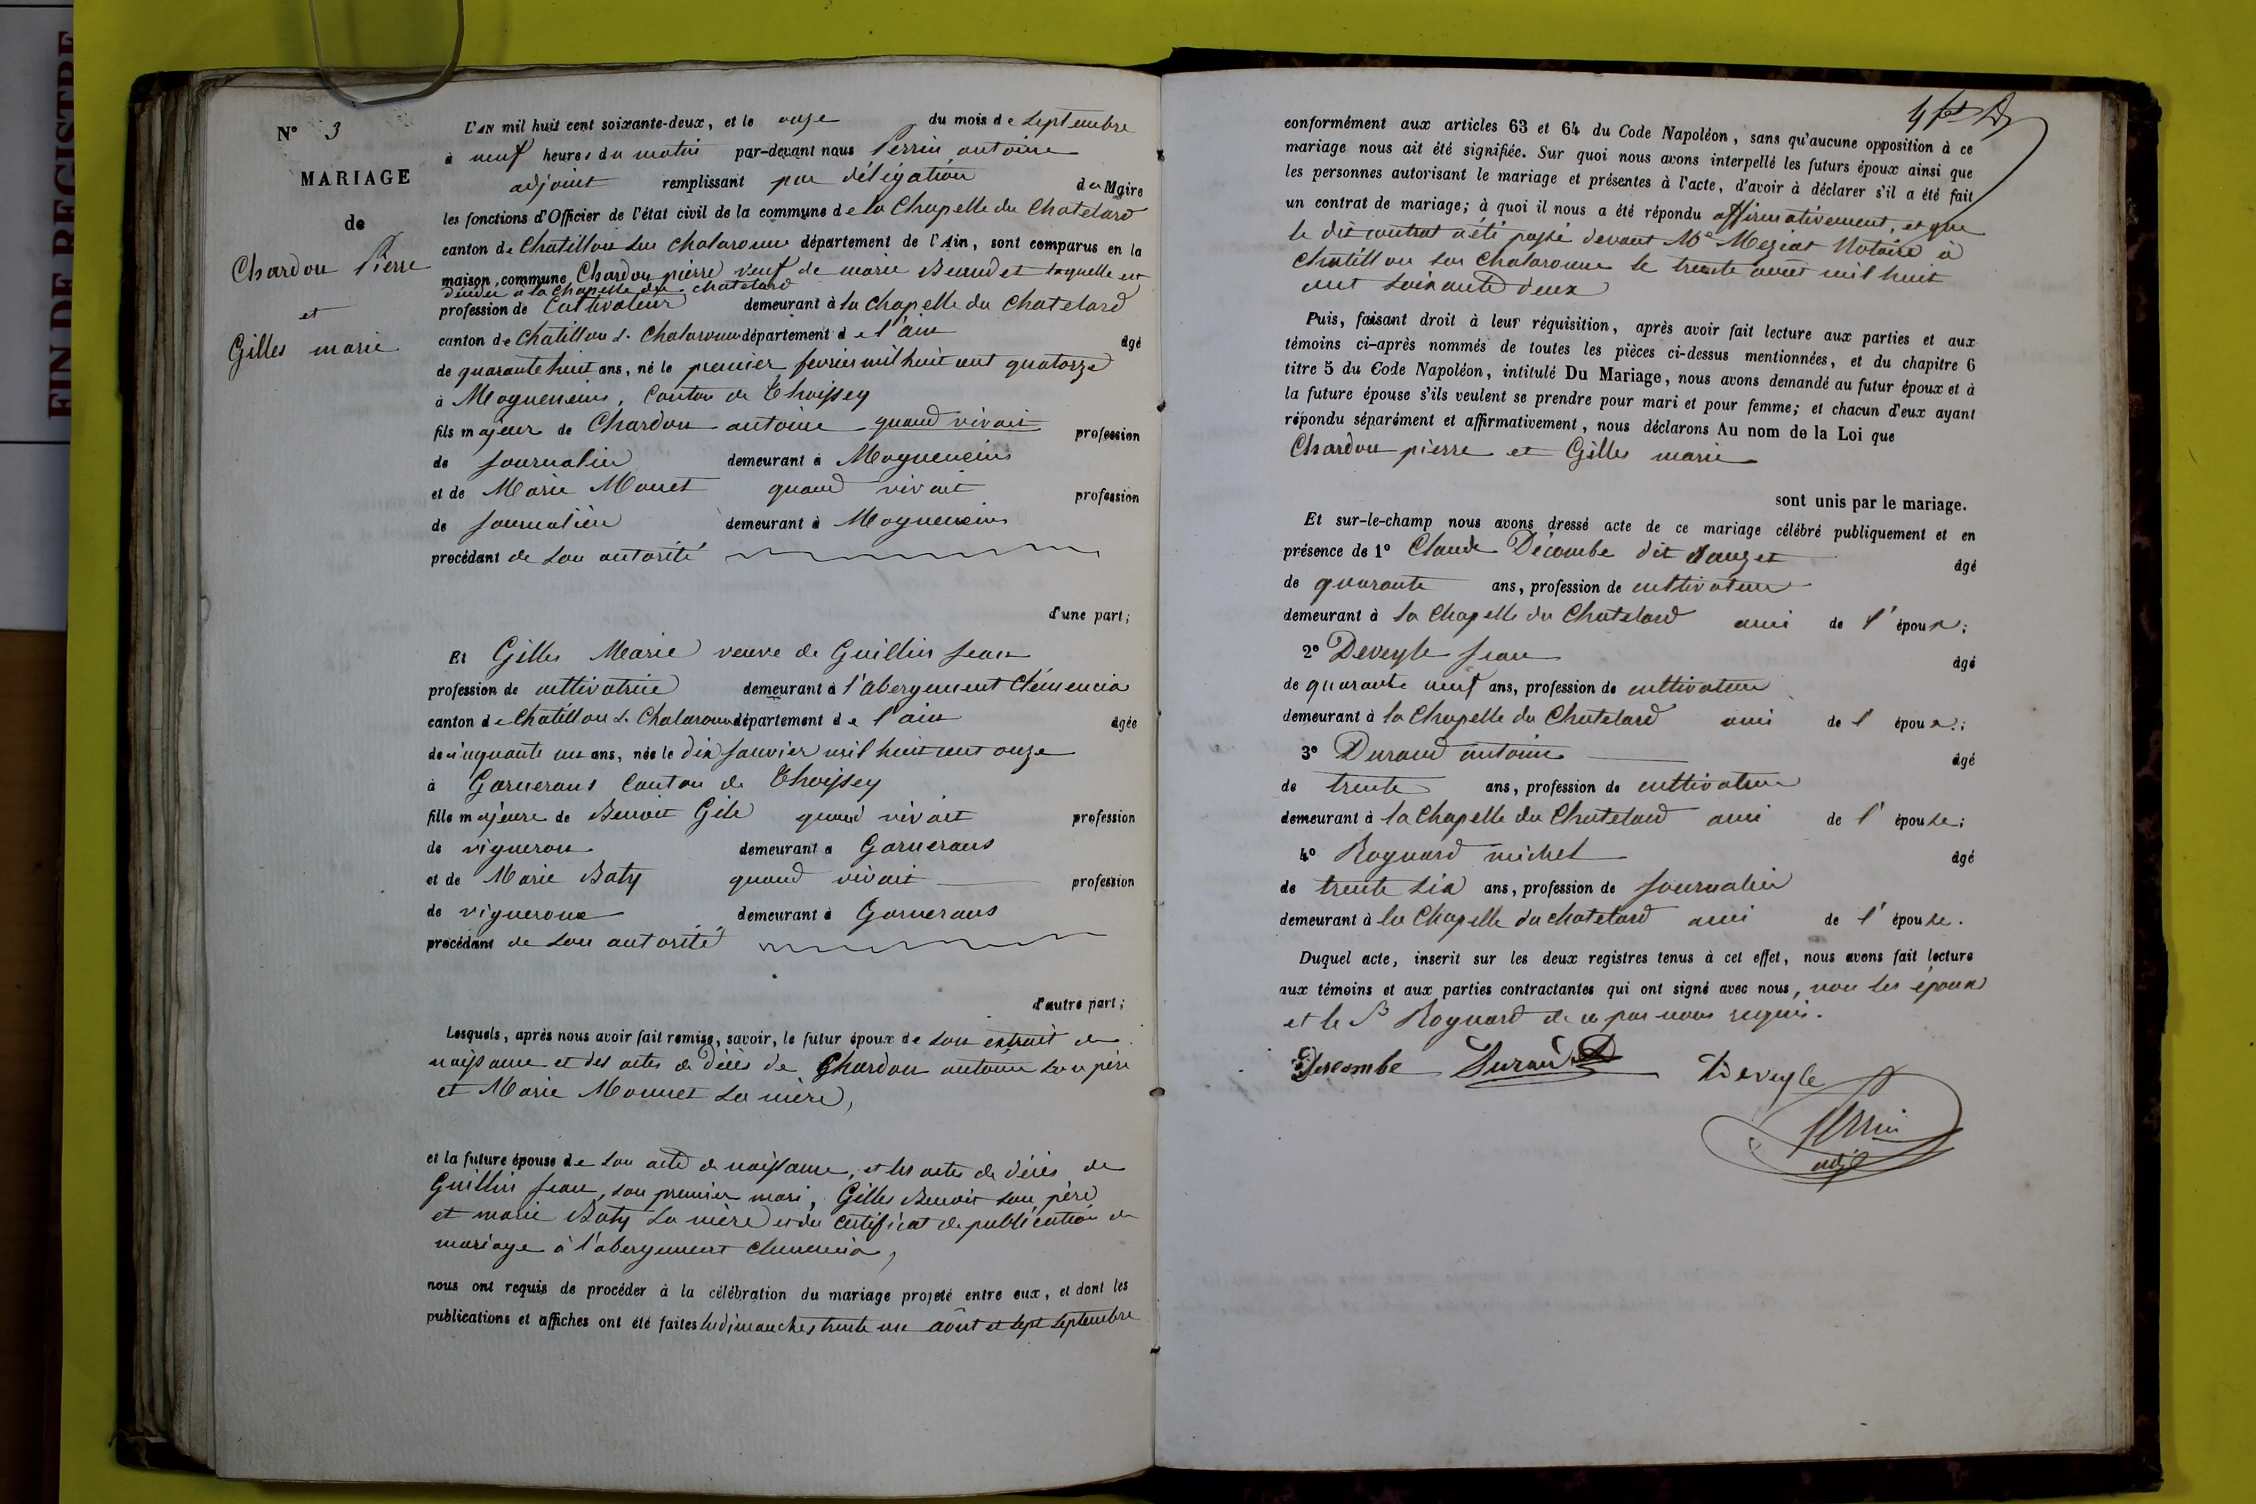 FIN DE REGISTRE
N° 3
MARIAGE
de
Chardon Pierre
et
Gilles marie
L'AN mil huit cent soixante-deux, et le onze du mois de Septembre
à neuf heures du matin par-devant nous Perrin antoine
adjoint remplissant par délégation du Maire
les fonctions d'Officier de l'état civil de la commune de la Chapelle du Chatelard
canton de Chatillon sur chalaronne département de l'Ain, sont comparus en la
maison commune Chardon pierre veuf de marie laquelle est
décédée à la Chapelle du chatelard
profession de Cultivateur demeurant à la chapelle du chatelard
canton de chatillon s. Chalaronne département de l'ain âgé
de quarante huit ans, né le premier fevrier mil huit cent quatorze
à Mogneneins, Canton de Thoissey
fils majeur de Chardon antoine quand vivait profession
de journalier demeurant à Mogneneins
et de Marie Monet quand vivait profession
de journalière demeurant à Mogneneins
procédant de son autorité
d'une part;
Et Gilles Marie veuve de Guillin jean
profession de cultivatrice demeurant à l'abergement Clémencia
canton de Chatillon s. Chalaronne département de l'ain âgée
de cinquante un ans, née le dix janvier mil huit cent onze
à Garnerans Canton de Thoissey
fille majeure de Benoit Gile quand vivait profession
de vigneron demeurant à Garnerans
et de Marie Baty quand vivait profession
de vigneronne demeurant à Garnerans
procédant de son autorité
d'autre part;
Lesquels, après nous avoir fait remise, savoir, le futur époux de son extrait de
naissance et des actes de décès de Chardon antoine son père
et Marie Monnet sa mère,
et la future épouse de son acte de naissance, et les actes de décès de
Guillin jean, son premier mari, Gilles Benoit son père
et marie Baty sa mère et du certificat de publication de
mariage à l'abergement clemencia,
nous ont requis de procéder à la célébration du mariage projeté entre eux, et dont les
publications et affiches ont été faites les dimanches trente un août et sept septembre
conformément aux articles 63 et 64 du Code Napoléon, sans qu'aucune opposition à ce
mariage nous ait été signifiée. Sur quoi nous avons interpellé les futurs époux ainsi que
les personnes autorisant le mariage et présentes à l'acte, d'avoir à déclarer s'il a été fait
un contrat de mariage; à quoi il nous a été répondu affirmativement, et que
le dit contrat a été passé devant Me Meziat Notaire à
Chatillon sur Chalaronne le trente août mil huit
cent soixante deux
Puis, faisant droit à leur réquisition, après avoir fait lecture aux parties et aux
témoins ci-après nommés de toutes les pièces ci-dessus mentionnées, et du chapitre 6
titre 5 du Code Napoléon, intitulé Du Mariage, nous avons demandé au futur époux et à
la future épouse s'ils veulent se prendre pour mari et pour femme; et chacun d'eux ayant
répondu séparément et affirmativement, nous déclarons Au nom de la Loi que
Chardon pierre et Gilles marie
sont unis par le mariage.
Et sur-le-champ nous avons dressé acte de ce mariage célébré publiquement et en
présence de 1° Claude Décombe dit âgé
de quarante ans, profession de cultivateur
demeurant à la Chapelle du Chatelard ami de l'époux;
2° Deveyle jean âgé
de quarante neuf ans, profession de cultivateur
demeurant à la Chapelle du Chatelard ami de l'époux;
3° Durand antoine âgé
de trente ans, profession de cultivateur
demeurant à la Chapelle du Chatelard ami de l'épouse;
4° Rognard michel âgé
de trente six ans, profession de journalier
demeurant à la Chapelle du chatelard ami de l'épouse.
Duquel acte, inscrit sur les deux registres tenus à cet effet, nous avons fait lecture
aux témoins et aux parties contractantes qui ont signé avec nous, non les époux
et le Sr Rognard de ce par nous requis.
Descombe Durand Deveyle
Perrin
adj